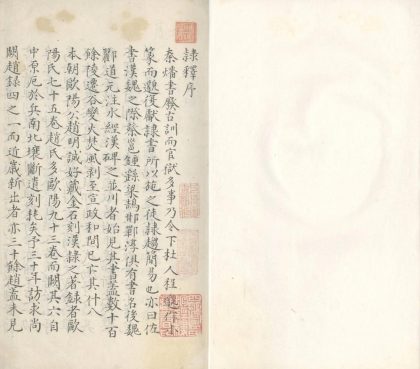 隸釋序
秦燔書廢古訓而官獄多事乃令下杜人程邈作小
篆而邈復獻隸書所以施之徒隸趨簡易也亦曰佐
書漢魏之際蔡邕鍾繇梁鵠邯鄲淳俱有書名後魏
酈道元注水經漢碑之並川者始見其書蓋數十百
餘陵遷谷變火焚風剥至宣政和間已亡其什八
本朝歐陽公趙明誠好藏金石刻漢隸之著錄者歐
陽氏七十五卷趙氏多歐陽九十三卷而闕其六自
中原厄於兵南北壤斷遺刻耗矣予三十年訪求尚
闕趙錄四之一而近歲新出者亦三十餘趙蓋未見